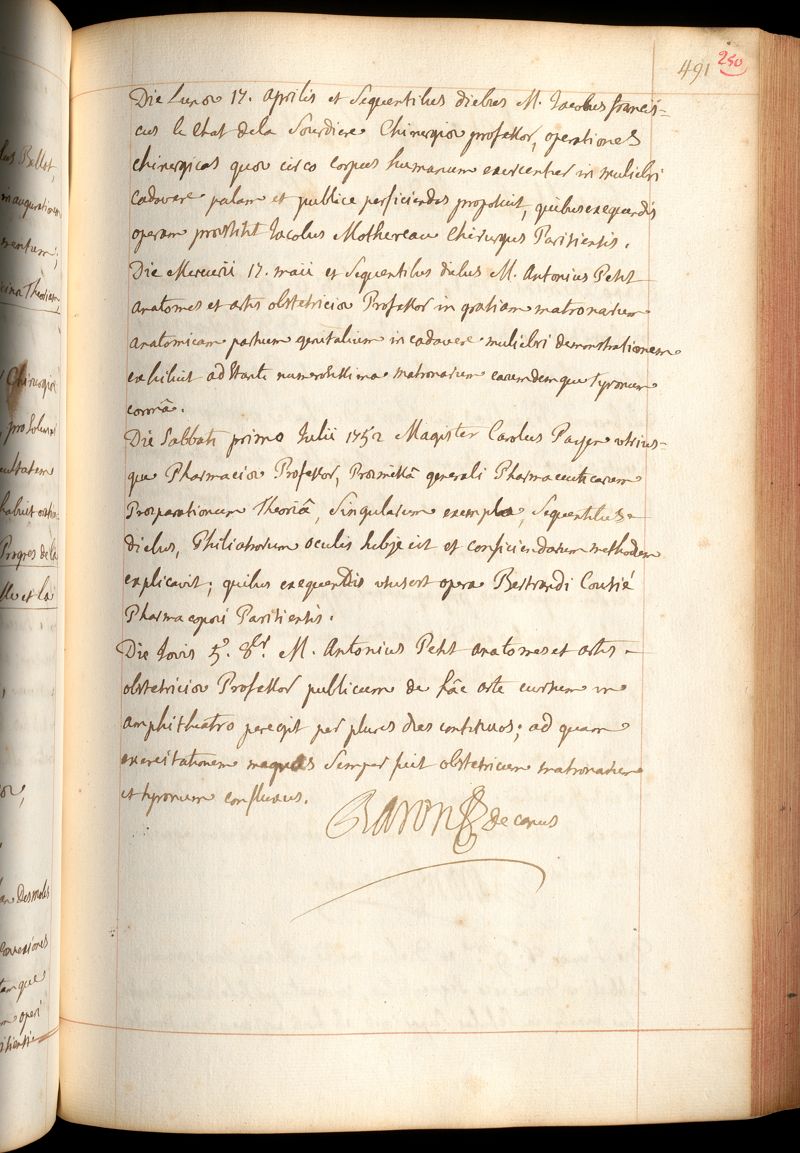 491 250
Die Lunæ 17. aprilis et sequentibus diebus M. Jacobus francis=
cus le Chat dela Sourdiere Chirurgiæ professor, operationes
chirurgicas quæ circa corpus humanum exercentur in muliebri
cadavere palam et publice perficiendas proposuit, quibus exequendis
operam præstitit Jacobus Mothereau Chirurgus Parisiensis.
Die Mercurii 17. maii et sequentibus diebus M. Antonius Petit
anatomes et artis obstetriciæ Professor in gratiam matronarum
anatomicam partium genitalium in cadavere muliebri demonstrationem
exhibuit adstante numerosissima matronarum earumdemque tyronum
coronâ.
Die Sabbati primo Julii 1752 Magister Carolus Payen utrius=
que Pharmaciæ Professor, Præmissâ generali Pharmaceuticarum
Præparationum Theoriâ, singularum exempla, sequentibus
diebus, Philiatrorum oculis subjecit et conficiendarum methodum
explicavit; quibus exequendis usus est opera Bertrandi Cousié
Pharmacopæi Parisiensis.
Die Jovis 5ª. 8br. M. Antonius Petit anatomes et artis
obstetriciæ Professor publicum de hâc arte cursum in
amphitheatro peregit per plures dies continuos; ad quam
exercitationem magnus semper fuit obstetricum matronarum
et tyronum confluxus.
Baron decanus
lus Bellot,
inauguration
mentum;
cina Theoriam
Chirurgiæ
pro Solum
cultatem
habuit
Progres de la
lle et la
Desmoles
Connexiones
tamque
operi